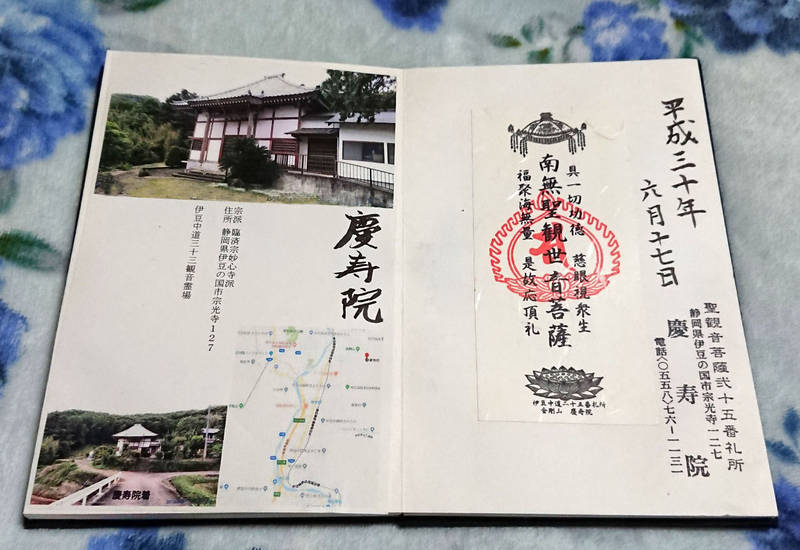 慶寿院
宗派 臨済宗妙心寺派
住所 静岡県伊豆の国市宗光寺127
伊豆中道三十三観音霊場
慶寿院着
平成三十年
六月十七日
具一切功徳 慈眼視衆生
南無聖観世音菩薩
福聚海無量 是故応頂礼
伊豆中道二十五番札所
金剛山 慶寿院
聖観音菩薩弐十五番札所
静岡県伊豆の国市宗光寺一二七
慶寿院
電話〈〇五五八〉七六ー一一三一